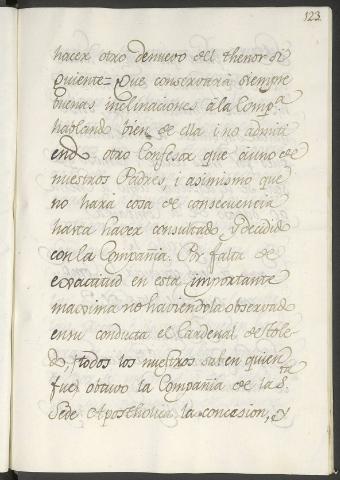 123.
hacer otro denuevo del thenor si
guiente= Que conservara siempre
buenas inclinaciones àla Comp.ª
habland bien de ella i no admiti
endo otro Confesor que àuno de
nuestros Padres, i asimismo que
no hara cosa de consecuencia
hasta haver consultado, y decidido
con la Compañia. Por falta de
exactitud en esta importante
maxima no haviendola observado
ensu conducta el Cardenal de Tole-
do, todos los nuestros saben quien
fue, obtuvo la Compañia de la S.ta
Sede Apostholica la concesion, y